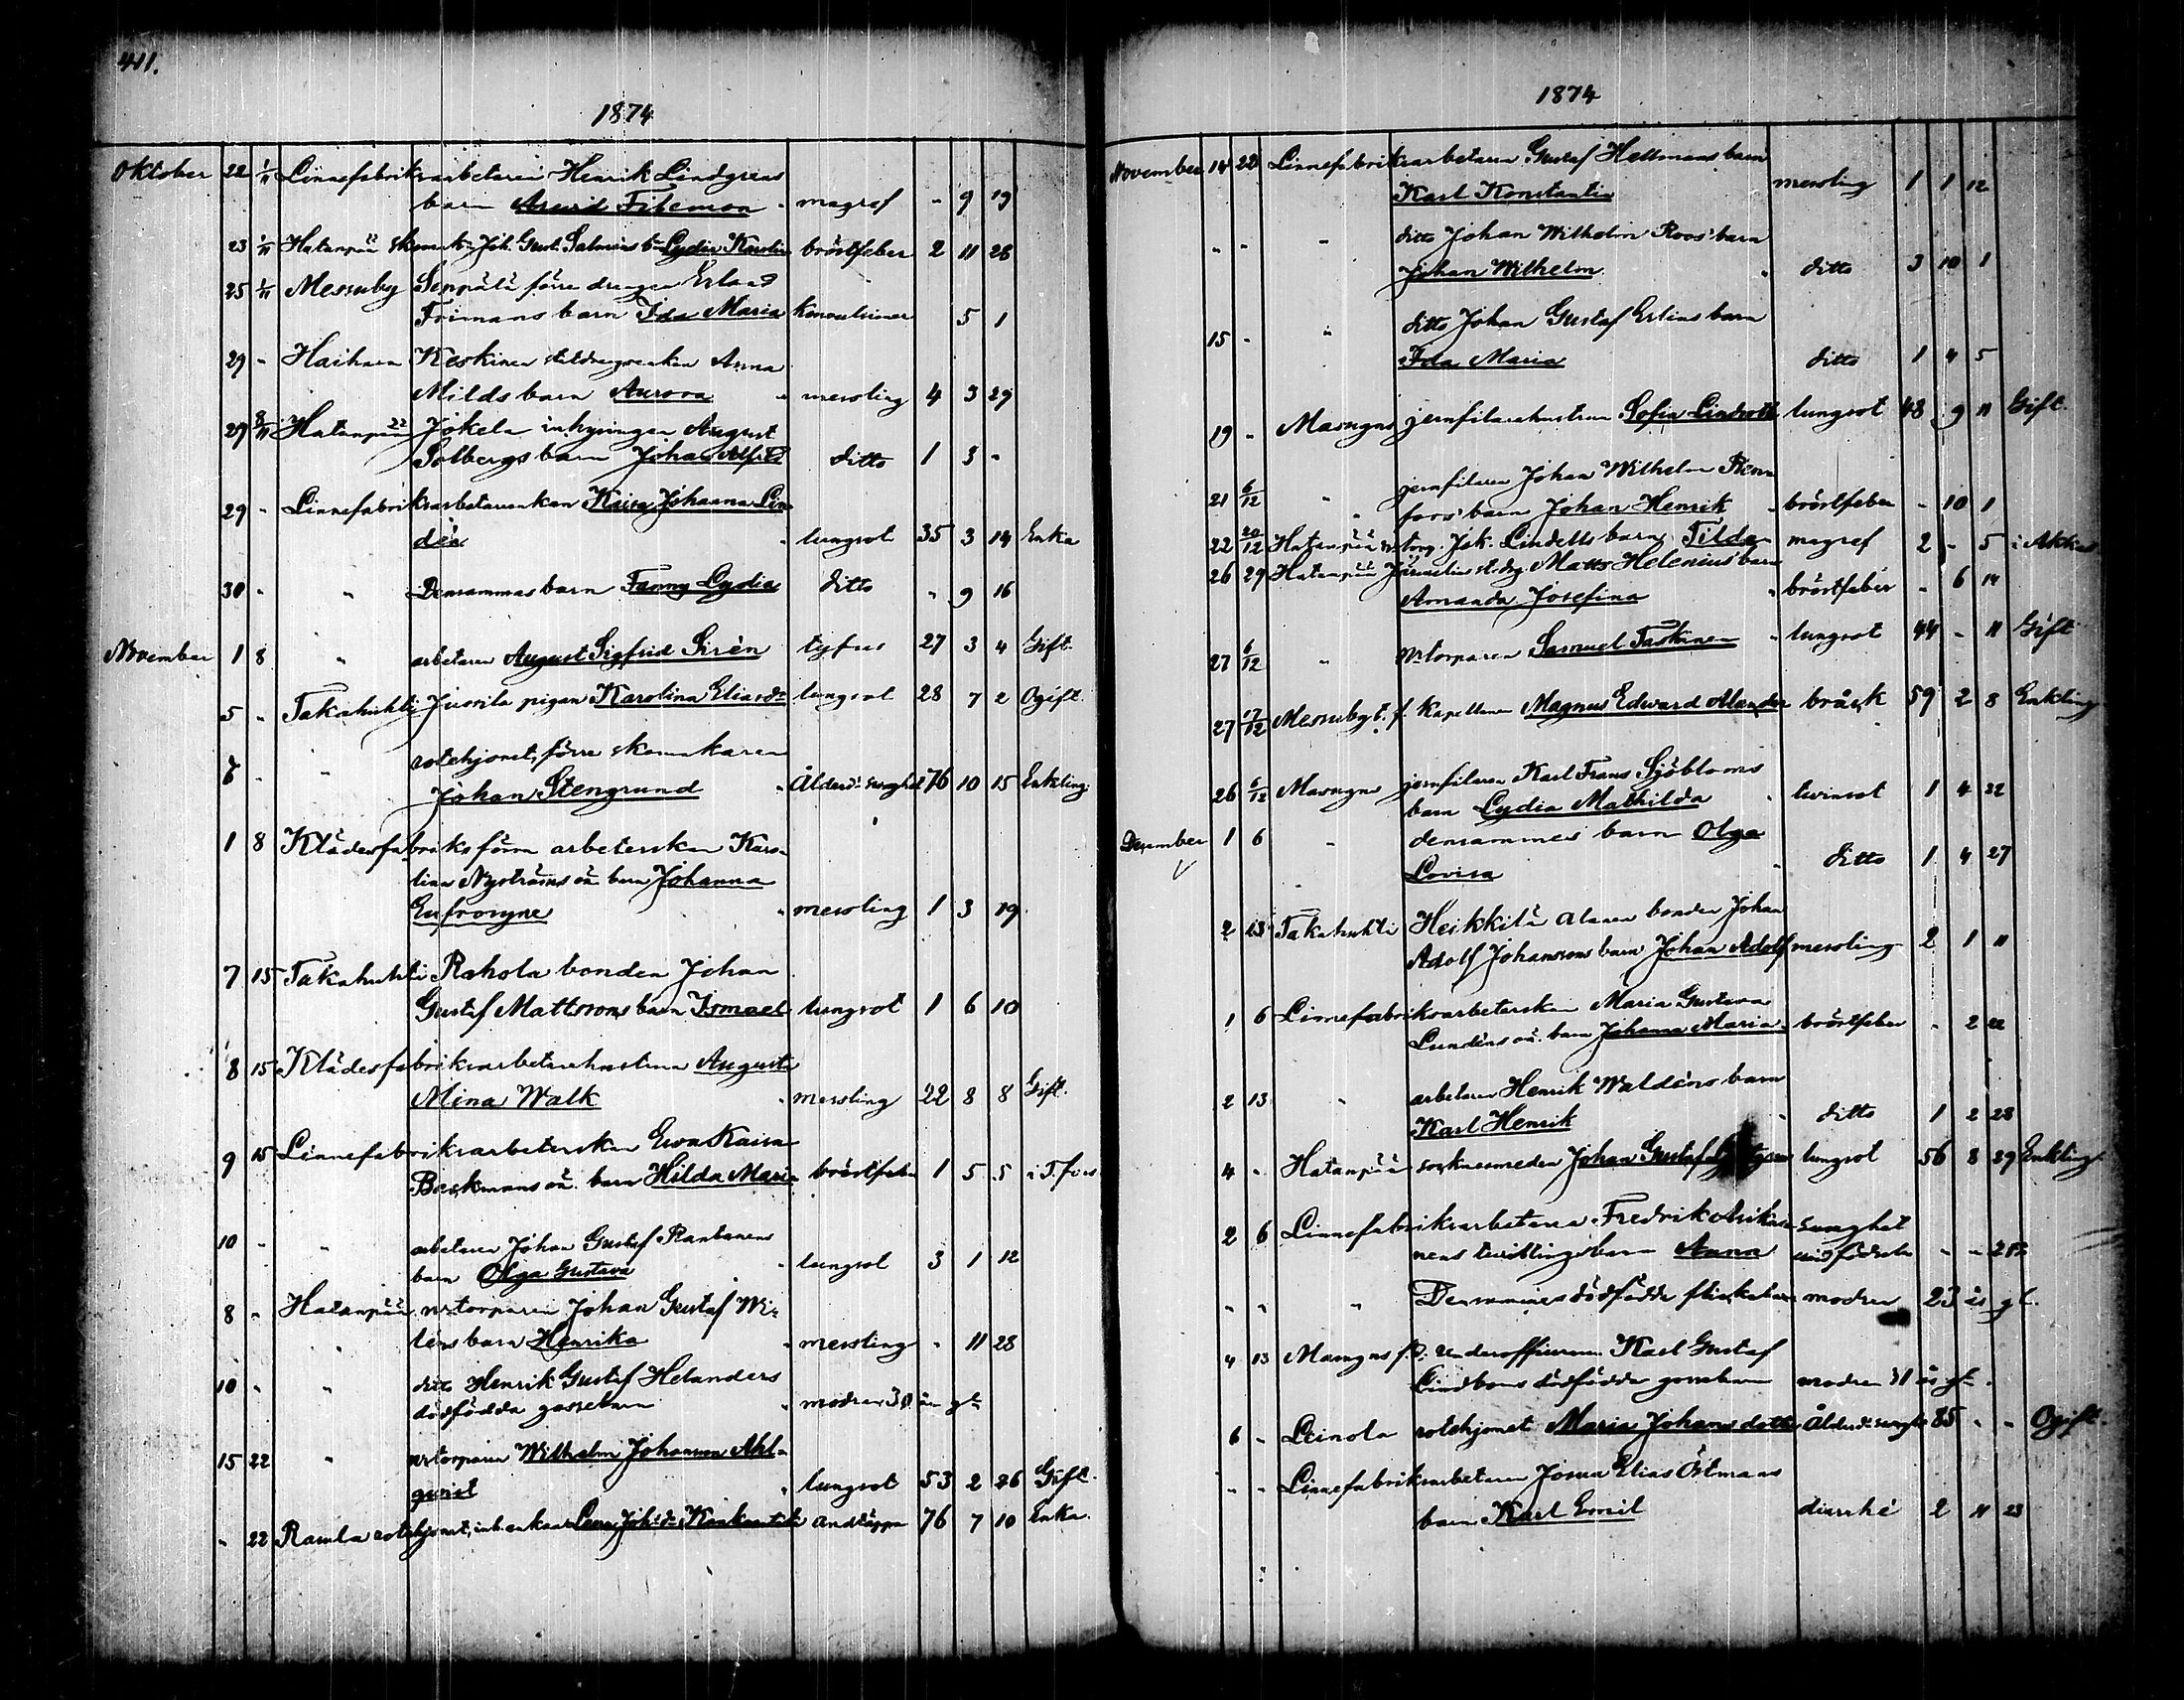 411.
1874
Oktober 22 1/11 Linnefabriksarbetaren Henrik Lindgrens
barn Arvid Filemon magref - 9 19
23 1/11 Hatanpää skomak. Joh. Gust. Salmins b. Lydia Karolin bröstfeber 2 11 28
25 1/11 Messuby Seppälä förre drengen Erland
Frimans barn Ida Maria konvulsioner 5 1
29 - Haihara Keskinen Anna
Milds barn Aurora messling 4 3 29
29 8/11 Hatanpää Jokela inhysingen August
Solbergs barn Johan Alfred ditto 1 3 -
29 - Linnefabriksarbetareenkan Kaisa Johanna Lin-
dén lungsot 35 3 14 Enka
30 - " Densammas barn Fanny Lydia ditto - 9 16
November 1 8 " arbetaren August Sigfrid Sirén tyfus 27 3 4 Gift.
5 - Takahuhti Jussila pigan Karolina Eliasdr lungsot 28 7 2 Ogift.
7 - " rotehjonet, förre skomakaren
Johan Stengrund Ålderd. svaghet 76 10 15 Enkling
1 8 Klädesfabriks förra arbeterskan Karo-
lina Nyströms oä. barn Johanna
Eufrosyne messling 1 3 19
7 15 Takahuhti Rahola bonden Johan
Gustaf Mattssons barn Ismael lungsot 1 6 10
8 15 Klädesfabriksarbetarehustrun Augusta
Mina Walk messling 22 8 8 Gift.
9 15 Linnefabriksarbeterskan Eva Kaisa
Backmans oä. barn Hilda Maria bröstfeber 1 5 5 i T.fors
10 - " arbetaren Johan Gustaf Rantanens
barn Olga Gustava lungsot 3 1 12
8 - Hatanpää nr torparen Johan Gustaf We-
léns barn Henrika messling - 11 28
10 - " ditto Henrik Gustaf Helanders
dödfödda gossebarn modren 30 år gl.
15 22 " nr torparen Wilhelm Johansson Ahl-
qvist lungsot 53 2 26 Gift.
- 22 Rautla rotehjonet, inh. enkan Lena Joh:sdr andtäppa 76 7 10 Enka
1874
November 14 22 Linnefabriksarbetaren Gustaf Hellmans barn
Karl Konstantin messling 1 1 12
" " " ditto Johan Wilhelm Roos' barn
Johan Wilhelm ditto 3 10 1
15 - " ditto Johan Gustaf Erlins barn
Ida Maria ditto 1 4 5
19 - Masugns jernfilarehustrun Sofia Lindroth lungsot 48 9 11 Gift.
21 6/12 " jernfilaren Johan Wilhelm
fors' barn Johan Henrik bröstfeber - 10 1
22 20/12 Hatanpää nr torp. Jak. Lindells barn Tilda magref 2 - 5 i Akkas
26 29 Hatanpää st.dr. Matts Helenius' barn
Amanda Josefina bröstfeber - 6 14
27 6/12 " nr torparen Samuel Taskinen lungsot 44 - 11 Gift
27 17/12 Messuby t. f. kapellanen Magnus Edvard Alander bråck 59 2 8 Enkling
26 6/12 Masugns jernfilaren Karl Frans Sjöbloms
barn Lydia Mathilda tvinsot 1 4 22
December 1 6 " densammes barn Olga
Lovisa ditto 1 4 27
2 13 Takahuhti Heikkilä Alanen bonden Johan
Adolf Johanssons barn Johan Adolf messling 2 1 11
1 6 Linnefabriksarbeterskan Maria Gustava
Lundéns oä. barn Johanna Maria bröstfeber - 2 22
2 13 " arbetaren Henrik Waldéns barn
Karl Henrik ditto 1 2 28
4 - Hatanpää socknesmeden Johan Gustaf lungsot 56 8 29 Enkling
2 6 Linnefabriksarbetaren Fredrik Asikai-
nens tvillingsbarn Anna svaghet
vid födseln - - 2
" " " Densammes dödfödda flickebarn modren 23 år gl.
4 13 Masugns f.d. underofficeren Karl Gustaf
Lindboms dödfödda gossebarn modren 31 år gl.
6 - Leinola rotehjonet Maria Johansdotter Ålderd. svaght 85 - - Ogift.
- - Linnefabriksarbetaren Josua Elias Östmans
barn Karl Emil diarrhé 2 11 23